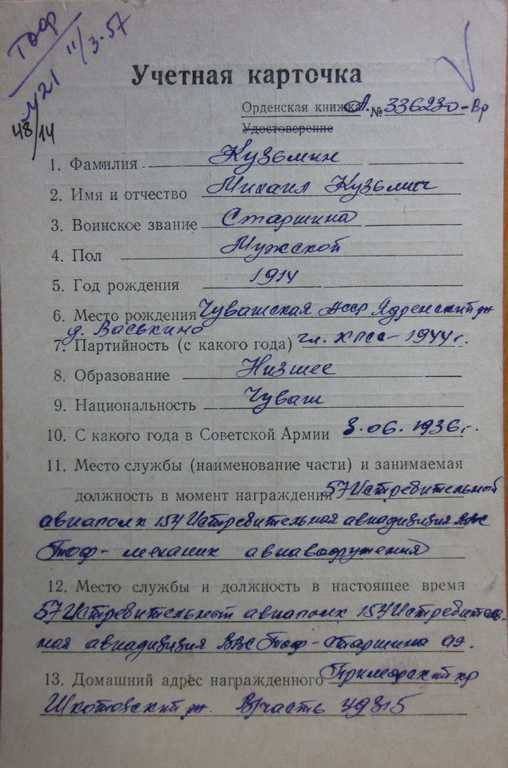 Тоф
421 11/3-57
48/14
Учетная карточка
Орденская книжка А № 336230-Вр
Удостоверение
1. Фамилия Кузьмин
2. Имя и отчество Михаил Кузьмич
3. Воинское звание Старшина
4. Пол Мужской
5. Год рождения 1914
6. Место рождения Чувашская АССР Ядренский рн
д. Васькина
7. Партийность (с какого года) чл. КПСС-1944г.
8. Образование Низшее
9. Национальность Чуваш
10. С какого года в Советской Армии 3.06.1936г.
11. Место службы (наименование части) и занимаемая
должность в момент награждения 57 Истребительной
авиаполк 154 Истребительная авиадивизия ВВС
Тоф-механик авиавооружения
12. Место службы и должность в настоящее время
57 Истребительной авиаполк 154 Истребитель-
ная авиадивизия ВВС Тоф-Старшина аэ.
13. Домашний адрес награжденного Приморский кр
Шкотовский рн. В/часть 49315